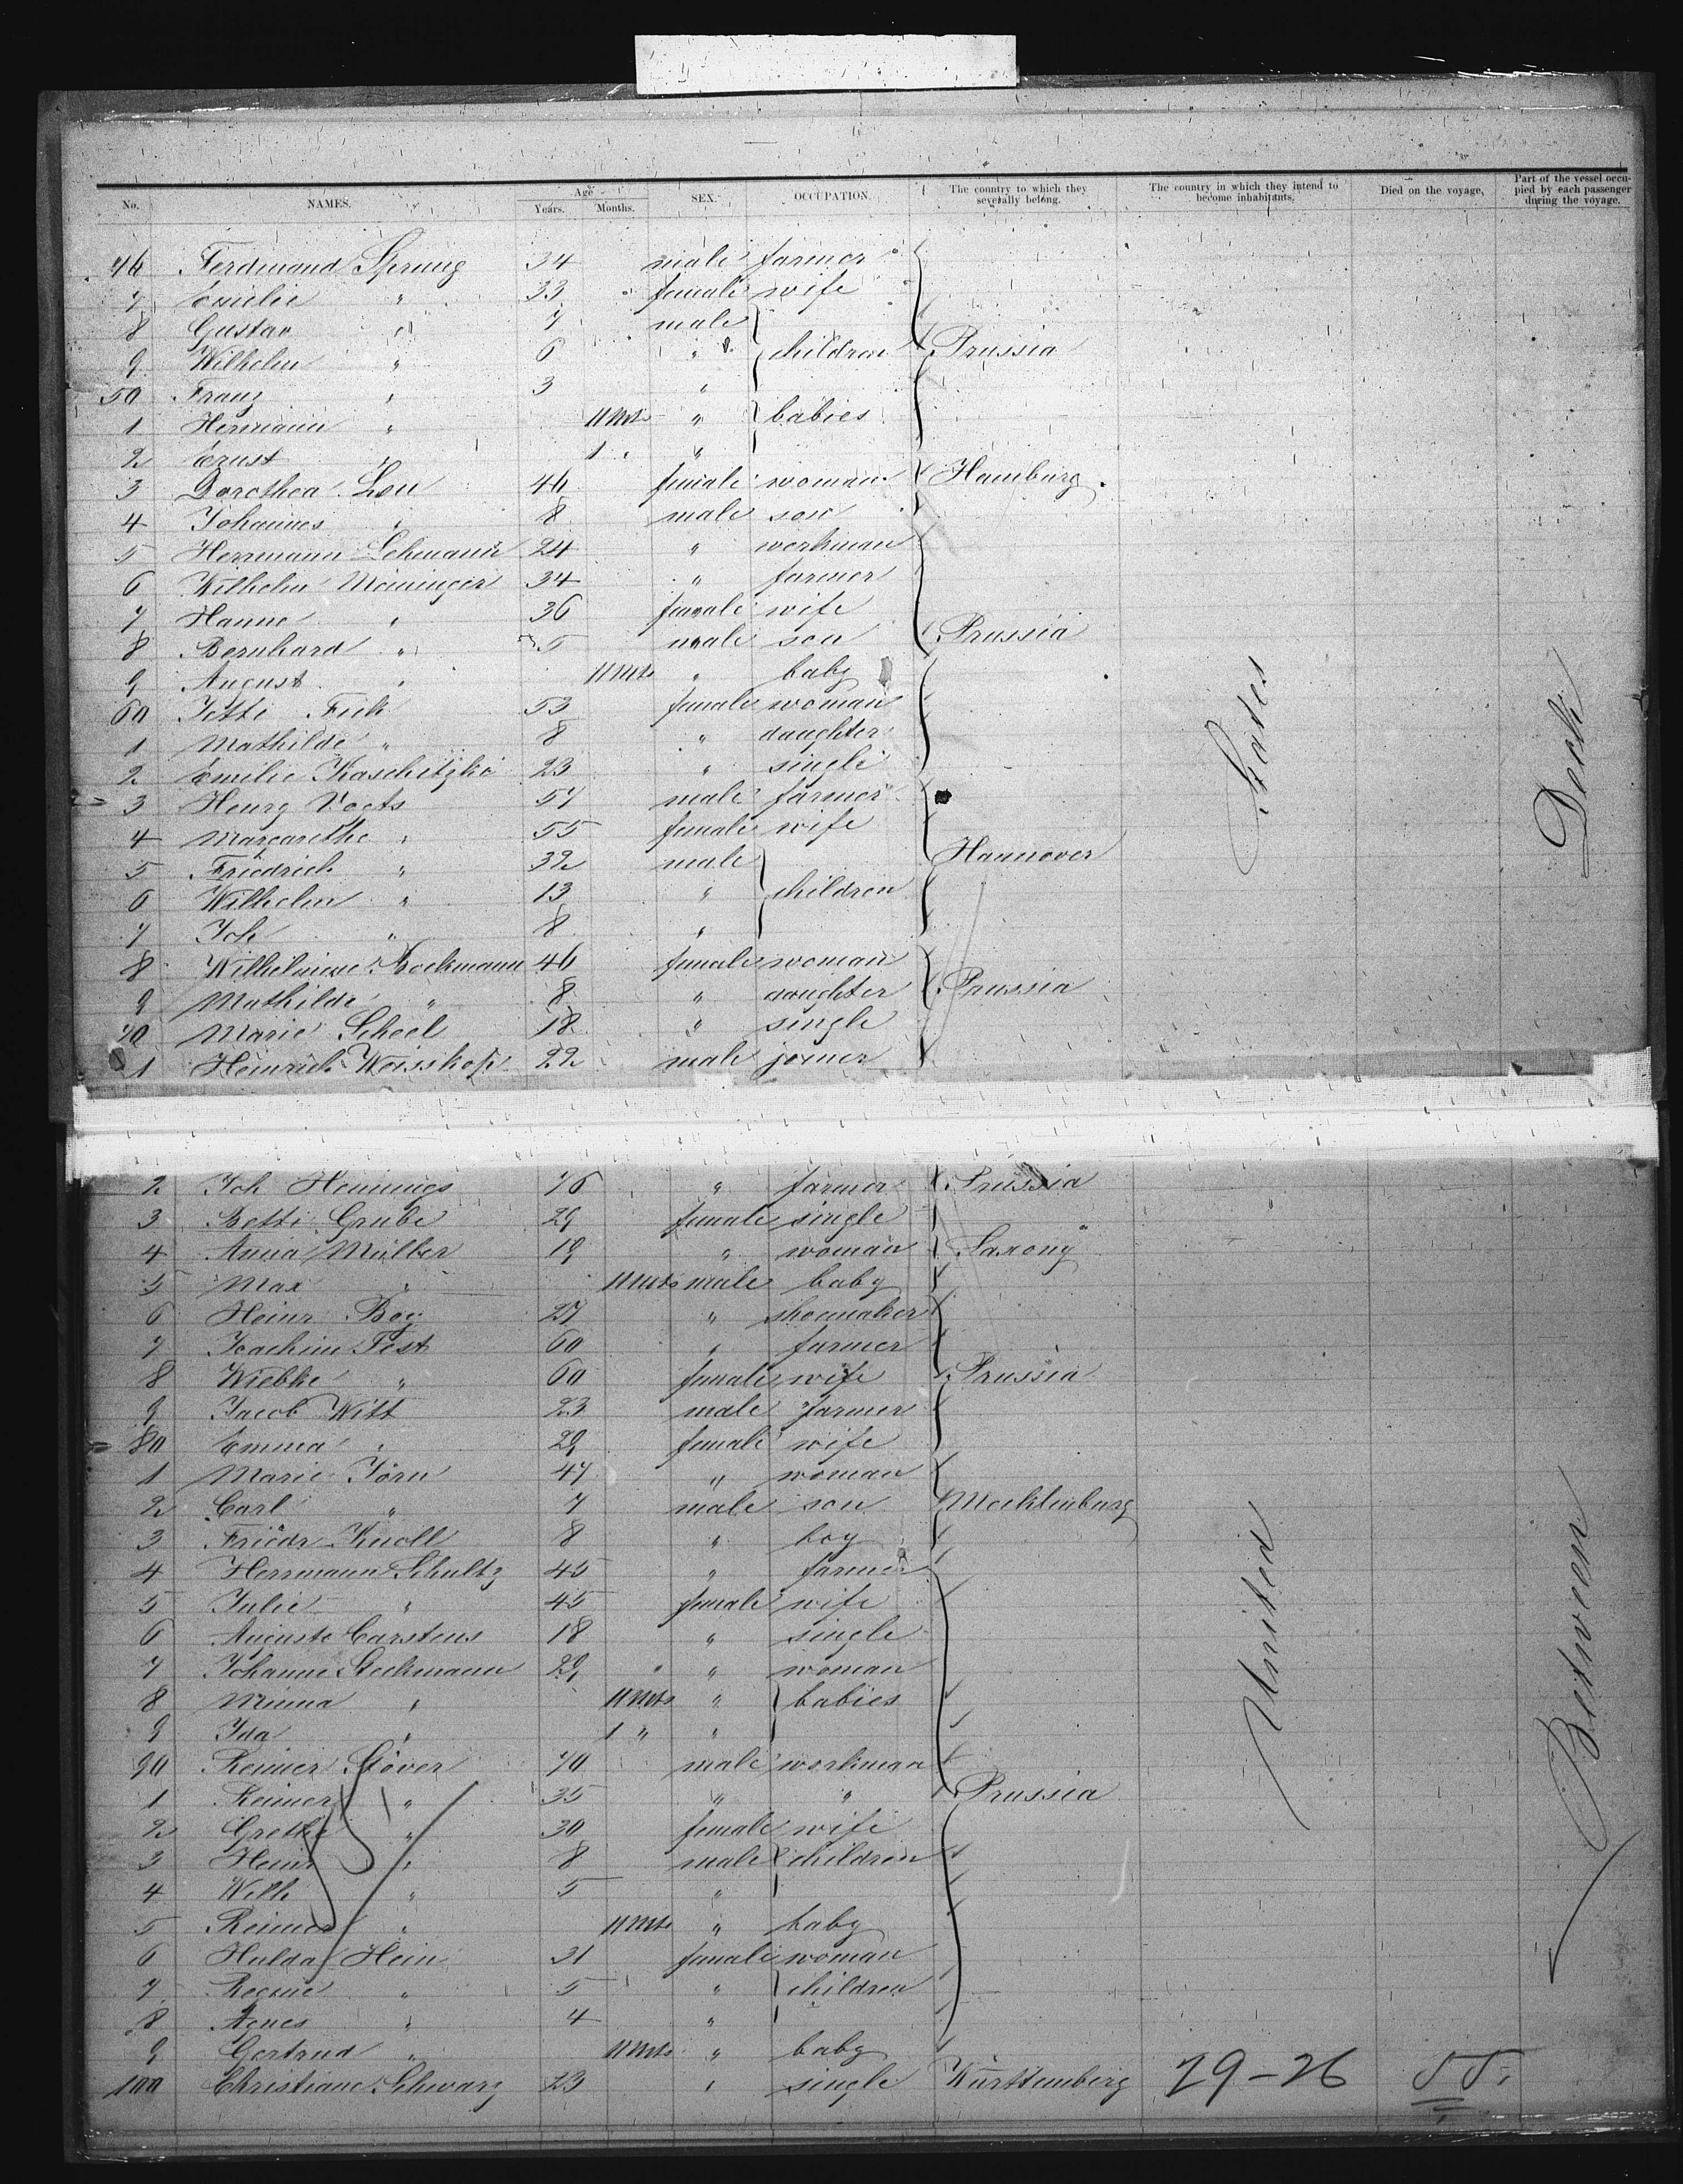 No. NAMES. Age Years. Months. SEX. OCCUPATION. The country to which they severally belong. The country in which they intend to become inhabitants. Died on the voyage, Part of the vessel occupied by each passenger during the voyage.
46 Ferdinand Sprung 34 male farmer
7 Emilie " 33 female wife
8 Gustav " 7 male
9 Wilhelm " 6 " children Prussia
50 Franz " 3 "
1 Hermann " 11 Mts " babies
2 Ernst " 1 " "
3 Dorothea Lou 46 female woman Hamburg
4 Johannes " 8 male son
5 Herrmann Lehmann 24 " workman
6 Wilhelm Meininger 34 " farmer
7 Hanne " 36 female wife
8 Bernhard " 5 male son Prussia
9 August " 11 Mts " baby
60 Jetti Fick 53 female woman
1 Mathilde " 8 " daughter
2 Emilie 23 " single
3 Henry Vogts 57 male farmer
4 Margarethe " 55 female wife
5 Friedrich " 32 male Hannover
6 Wilhelm " 13 " children
7 Joh " 8 "
8 Wilhelmine Bockmann 46 female woman
9 Mathilde " 8 " daughter Prussia
70 Marie Scheel 18 " single
1 Heinrich Weisskopf 22 male joiner
2 Joh Hennings 76 " farmer Prussia
3 Betti Grube 29 female single
4 Anna Müller 19 " woman Saxony
5 Max " 11 Mts male baby
6 Heinr Boy 27 " shoemaker
7 Joachim Fest 60 " farmer
8 Wiebke " 60 female wife Prussia
9 Jacob Witt 23 male farmer
80 Emma " 29 female wife
1 Marie Jörn 47 " woman
2 Carl " 7 male son Mecklenburg
3 Friedr Knoll 8 " boy
4 Herrmann Schultz 45 " farmer
5 Julie " 45 female wife
6 Auguste Carstens 18 " single
7 Johanne Steckmann 29 " woman
8 Minna " 11 Mts " babies
9 Ida " 1 " "
90 Reimer Stöver 70 male workman
1 Reimer " 35 " " Prussia
2 Grethe " 30 female wife
3 Heinr " 8 male children
4 Wilh " 5 "
5 Reimer " 11 Mts " baby
6 Hulda Hein 31 female woman
7 " 5 " children
8 Agnes " 4 "
9 Gertrud " 11 Mts " baby
100 Christiane Schwarz 23 " single Württemberg 29-26
United States
Between Deck